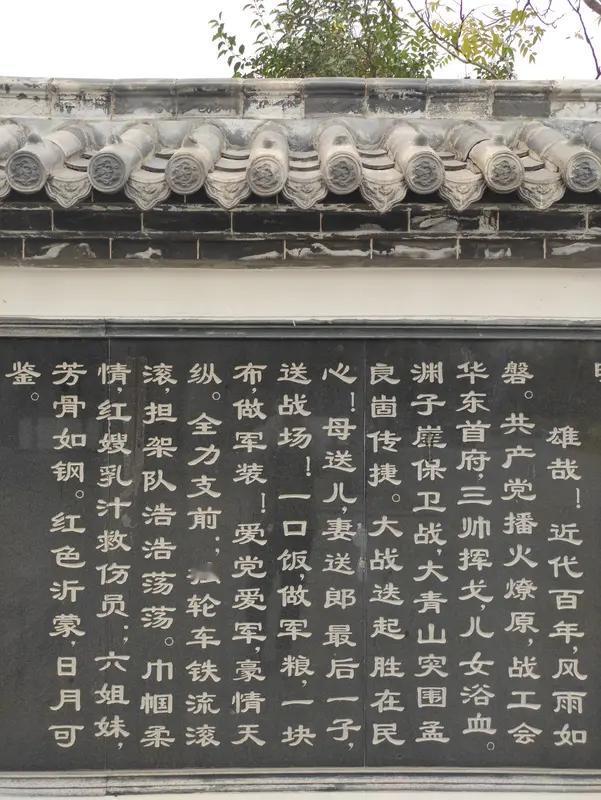 雄哉！近代百年，风雨如
磐。共产党播火燎原，战工会
华东首府，三帅挥戈，儿女浴血。
渊子崖保卫战，大青山突围孟
良崮传捷。大战迭起胜在民
心！母送儿，妻送郎最后一子，
送战场！一口饭，做军粮，一块
布，做军装！爱党爱军，豪情天
纵。全力支前；轮车铁流滚
滚，担架队浩浩荡荡。巾帼柔
情，红嫂乳汁救伤员；六姐妹，
芳骨如钢。红色沂蒙，日月可
鉴。